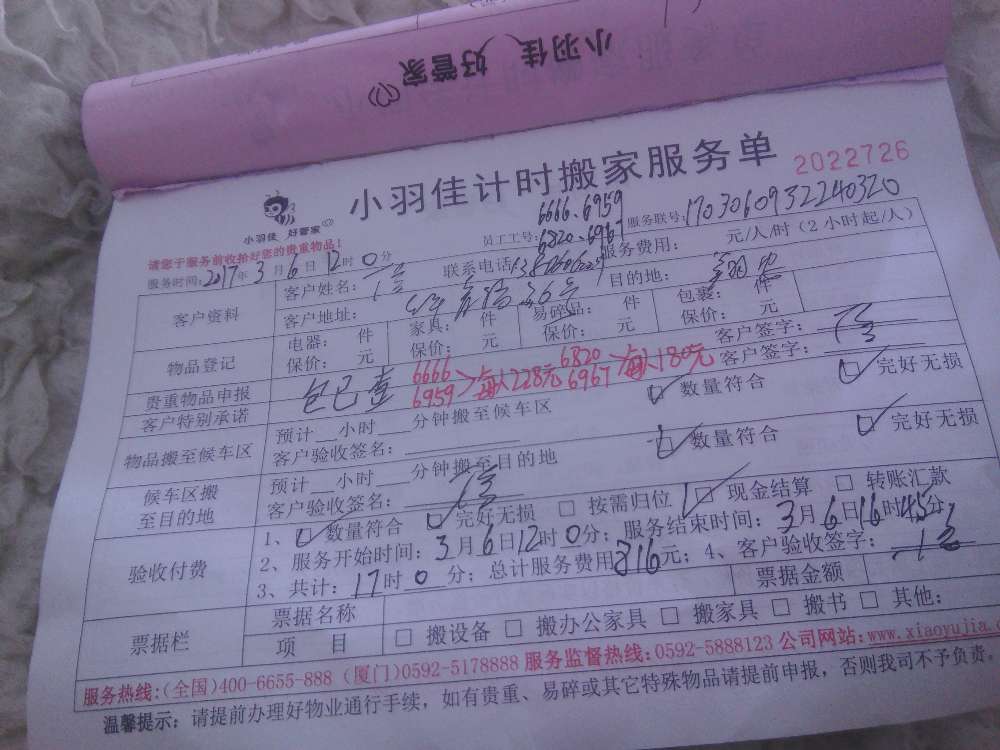 小羽佳 好管家
小羽佳计时搬家服务单
2022726
小羽佳 好管家
请您于服务前收拾好您的贵重物品！
员工工号: 6666、6959
6820、6967
服务联号: 1703060932240320
服务时间: 2017年3月6日12时0分 联系电话: 服务费用: 元/人/时 (2小时起/人)
客户资料
客户姓名:
客户地址: 目的地:
物品登记
电器: 件 家具: 件 易碎品: 件 包裹: 件
保价: 元 保价: 元 保价: 元 保价: 元
贵重物品申报 客户签字:
客户特别承诺 包已查 6666 6959 每人228元 6820 6967 每人180元 客户签字:
物品搬至候车区
预计__小时____分钟搬至候车区 数量符合 完好无损
客户验收签名:
候车区搬至目的地
预计__小时____分钟搬至目的地 数量符合 完好无损
客户验收签名:
验收付费
1、数量符合 完好无损 按需归位 现金结算 转账汇款
2、服务开始时间: 3月6日12时0分; 服务结束时间: 3月6日16时45分
3、共计: 17时0分; 总计服务费用816元; 4、客户验收签字:
票据栏
票据名称 票据金额
项 目 搬设备 搬办公家具 搬家具 搬书 其他:
服务热线: (全国)400-6655-888 (厦门)0592-5178888 服务监督热线: 0592-5888123 公司网站: www.xiaoyujia.c
温馨提示: 请提前办理好物业通行手续, 如有贵重、易碎或其它特殊物品请提前申报, 否则我司不予负责。